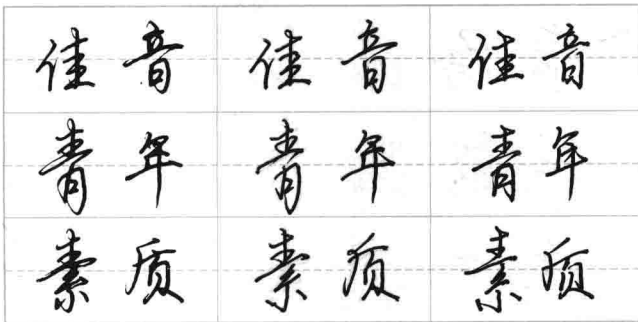 佳音 佳音 佳音
青年 青年 青年
素质 素质 素质